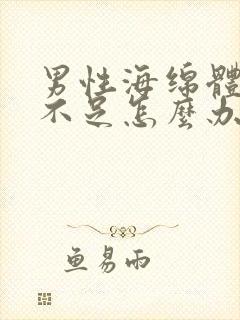 男性海绵體
不足怎麼办
鱼易雨